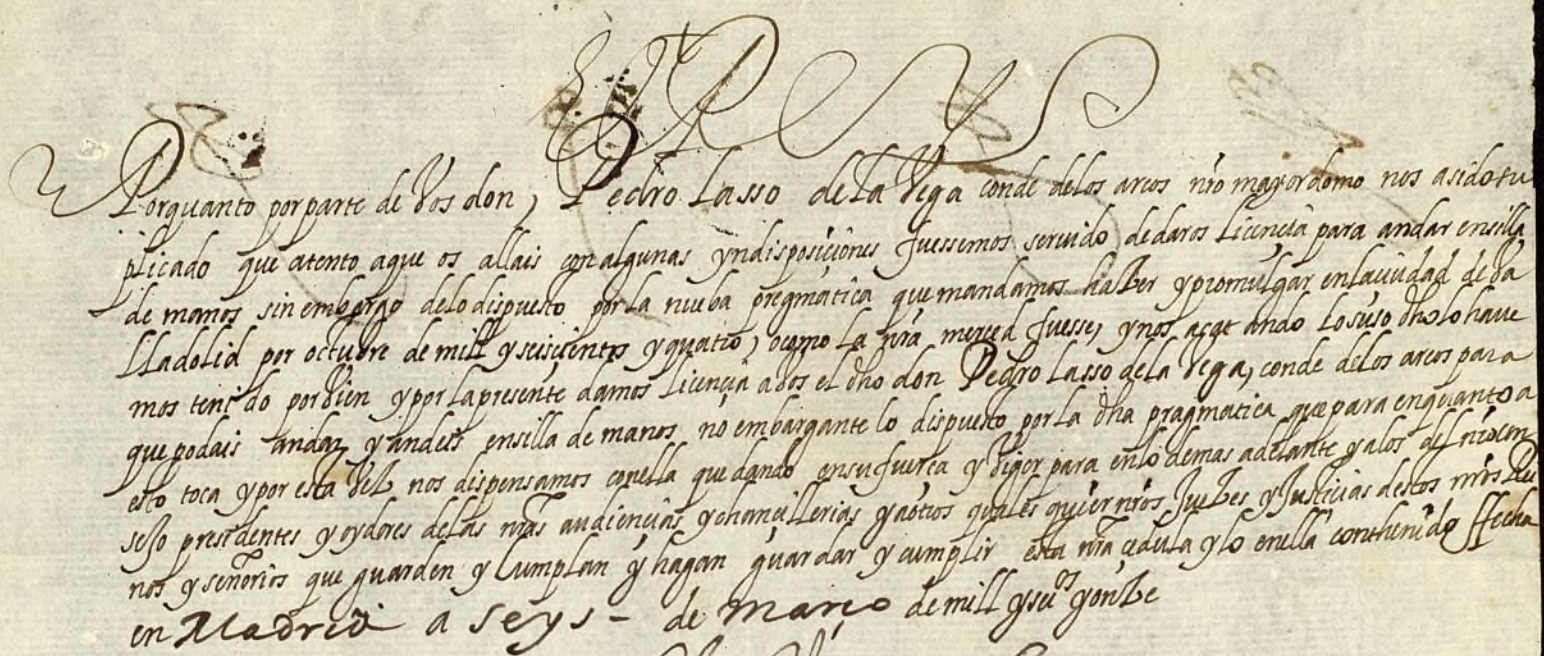 El Rey
Porquanto porparte de Vos don, Pedro Lasso dela Vega conde delos arcos nro mayordomo nos asido su
plicado que atento aque os allais con algunas yndisposiciones fuessemos seruido dedaros licencia para andar ensilla
de manos sin embargo delo dispuesto por la nueba pregmatica que mandamos haber y promulgar enlaciudad deva
lladolid por octubre de mill y seiscientos y quatro, o como la nra merced fuesse, y nos acatando lo suso dho lo have
mos tenido por bien y por la presente damos licencia a Vos el dho don Pedro Lasso dela Vega, conde delos arcos para
que podais andar y andeis ensilla de manos no embargante lo dispuesto por la dha pragmatica que para enquanto a
esto toca y por esta vez nos dispensamos conella quedando ensu fuerça y vigor para enlo demas adelante y alos del nro con
sejo presidentes y oydores delas nras audiencias y chancillerias y a otros quales quier nros Juezes y Justicias destos nros Rey
nos y señorios que guarden y cumplan y hagan guardar y cumplir esta nra cedula y lo enella conthenido ffecha
en Madrid a seys - de março de mill y seisos y onze